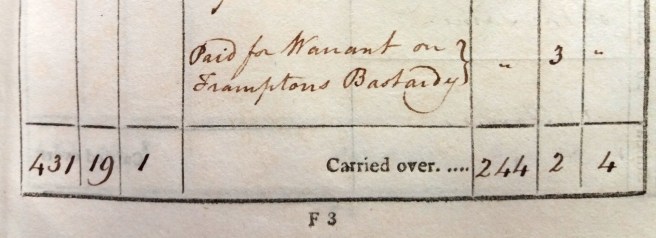 Paid for Warrant on } " 3 "
Framptons Bastardy
431 19 1 Carried over. .... 244 2 4
F 3